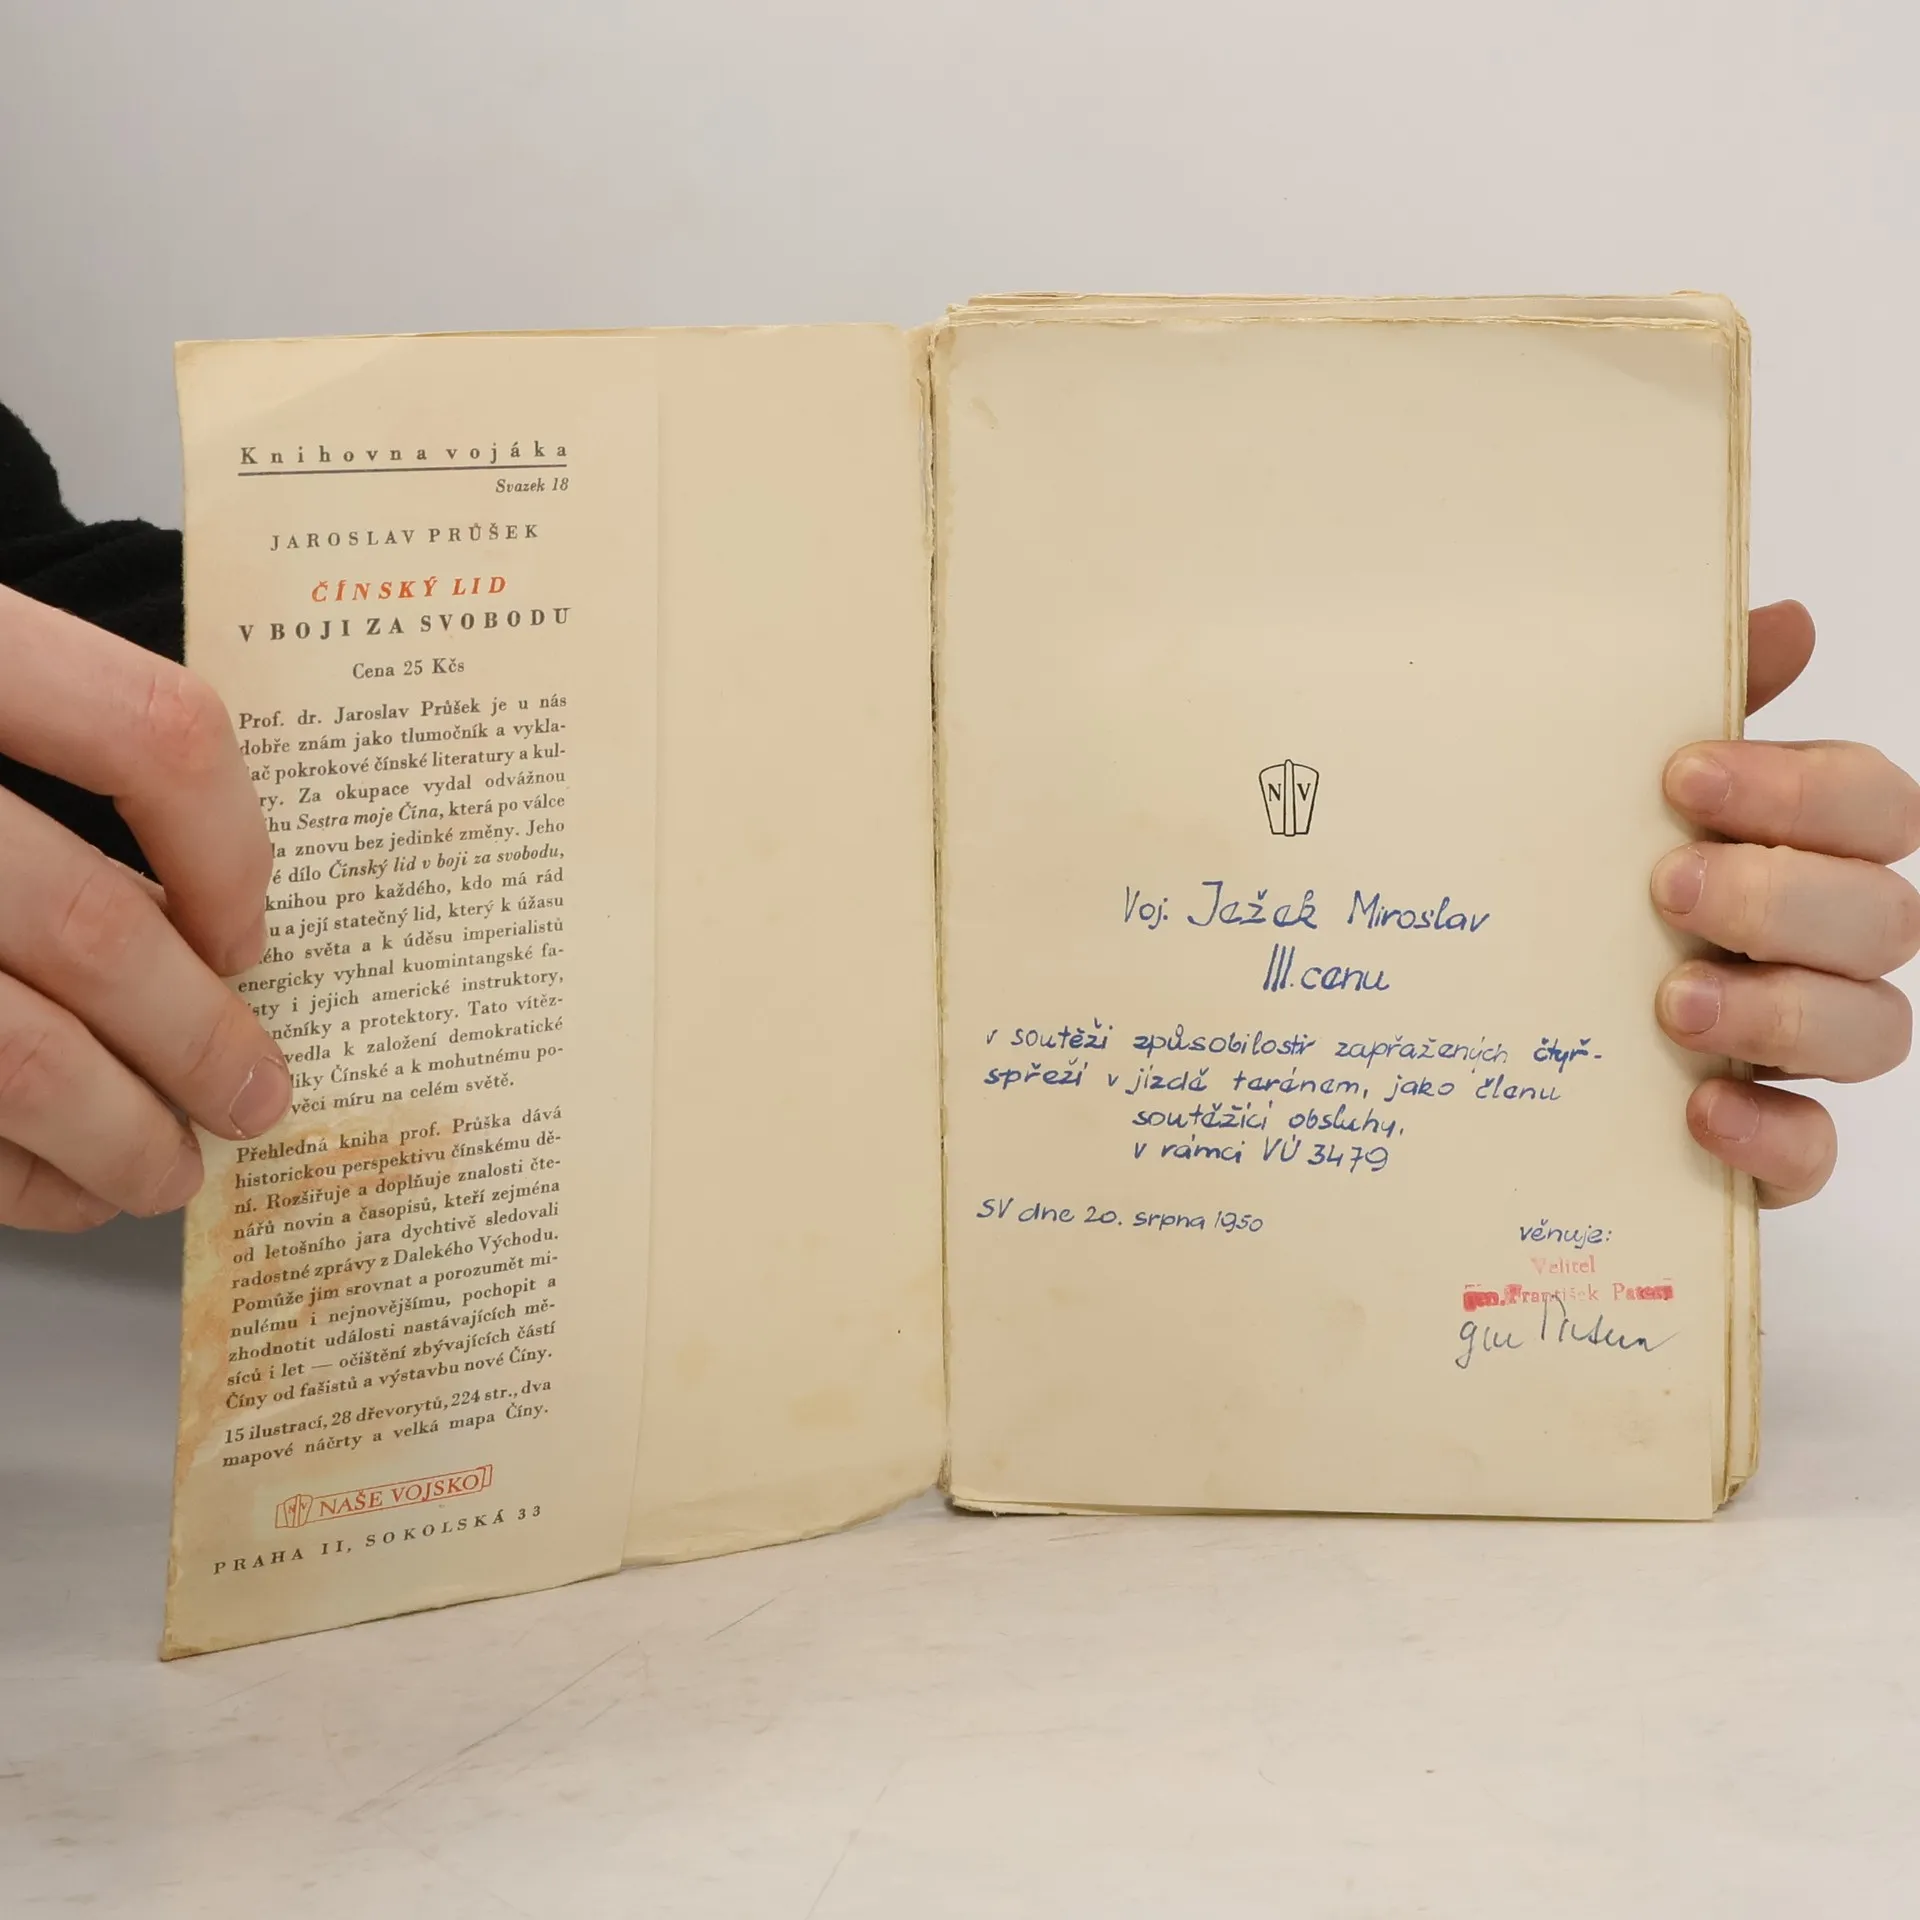 Knihovna vojáka
Svazek 18
JAROSLAV PRŮŠEK
ČÍNSKÝ LID
V BOJI ZA SVOBODU
Cena 25 Kčs
Prof. dr. Jaroslav Průšek je u nás
dobře znám jako tlumočník a vykla-
ač pokrokové čínské literatury a kul-
ry. Za okupace vydal odvážnou
hu Sestra moje Čína, která po válce
la znovu bez jedinké změny. Jeho
é dílo Čínský lid v boji za svobodu,
knihou pro každého, kdo má rád
u a její statečný lid, který k úžasu
ého světa a k úděsu imperialistů
energicky vyhnal kuomintangské fa-
sty i jejich americké instruktory,
nčníky a protektory. Tato vítěz-
vedla k založení demokratické
liky Čínské a k mohutnému po-
věci míru na celém světě.
Přehledná kniha prof. Průška dává
historickou perspektivu čínskému dě-
ní. Rozšiřuje a doplňuje znalosti čte-
nářů novin a časopisů, kteří zejména
od letošního jara dychtivě sledovali
radostné zprávy z Dalekého Východu.
Pomůže jim srovnat a porozumět mi-
nulému i nejnovějšímu, pochopit a
zhodnotit události nastávajících mě-
síců i let — očištění zbývajících částí
Číny od fašistů a výstavbu nové Číny.
15 ilustrací, 28 dřevorytů, 224 str., dva
mapové náčrty a velká mapa Číny.
NV NAŠE VOJSKO
PRAHA II, SOKOLSKÁ 33
NV
Voj. Ježek Miroslav
III. cenu
v soutěži způsobilosti zapřažených čtyř-
spřeží v jízdě terénem, jako členu
soutěžící obsluhy.
v rámci VÚ 3479
SV dne 20. srpna 1950
věnuje:
Velitel
František